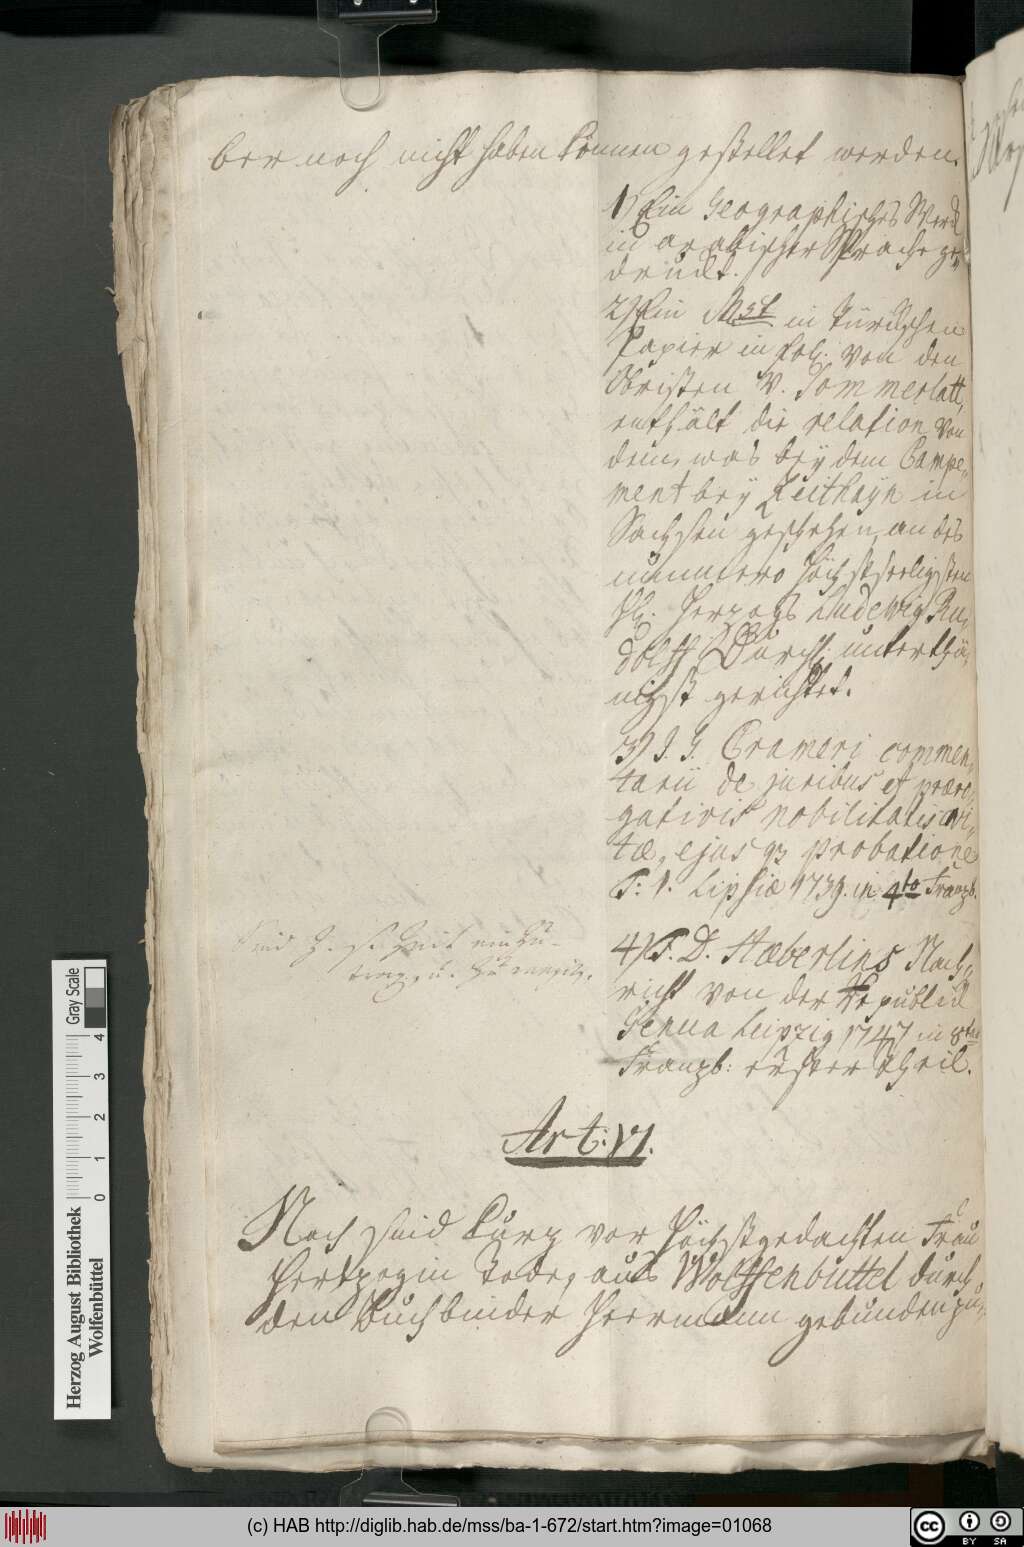 ber noch nicht haben können gestellet werden.
1) Ein Geographisches Werck
in arabischer Sprache ge-
druckt.
2) Ein Mst in türckschen
Papier in fol: von den
Obristen V. Pommerlatt,
enthält die relation von
dem, was bey dem Campe-
ment bey Zeithayn in
Sachsen geschehen, an des
nunmero Höchstseeligsten
H. Herzogs Ludewig Ru-
dolff Durchl: unterthä-
nigst gerichtet.
3) J. G. Crameri commen-
tarii de juribus et præro-
gativis nobilitatis avi-
tæ, ejusqz probatione
T: 1. Lipsiæ 1739. in 4to Franzb.
Sind z. s. Zeit
4) F. D. Hæberlins Nach-
richt von der Republic
Genua Leipzig 1747 in 8tav
Franzb: erster theil.
Art: VI.
Noch sind kurz vor Höchstgedachten Frau
Hertzogin Tode, aus Wolffenbüttel durch
den Buchbinder Herrmann gebunden zu-
Herzog August Bibliothek
Wolfenbüttel
Gray Scale
0 1 2 3 4
(c) HAB http://diglib.hab.de/mss/ba-1-672/start.htm?image=01068
cc BY SA